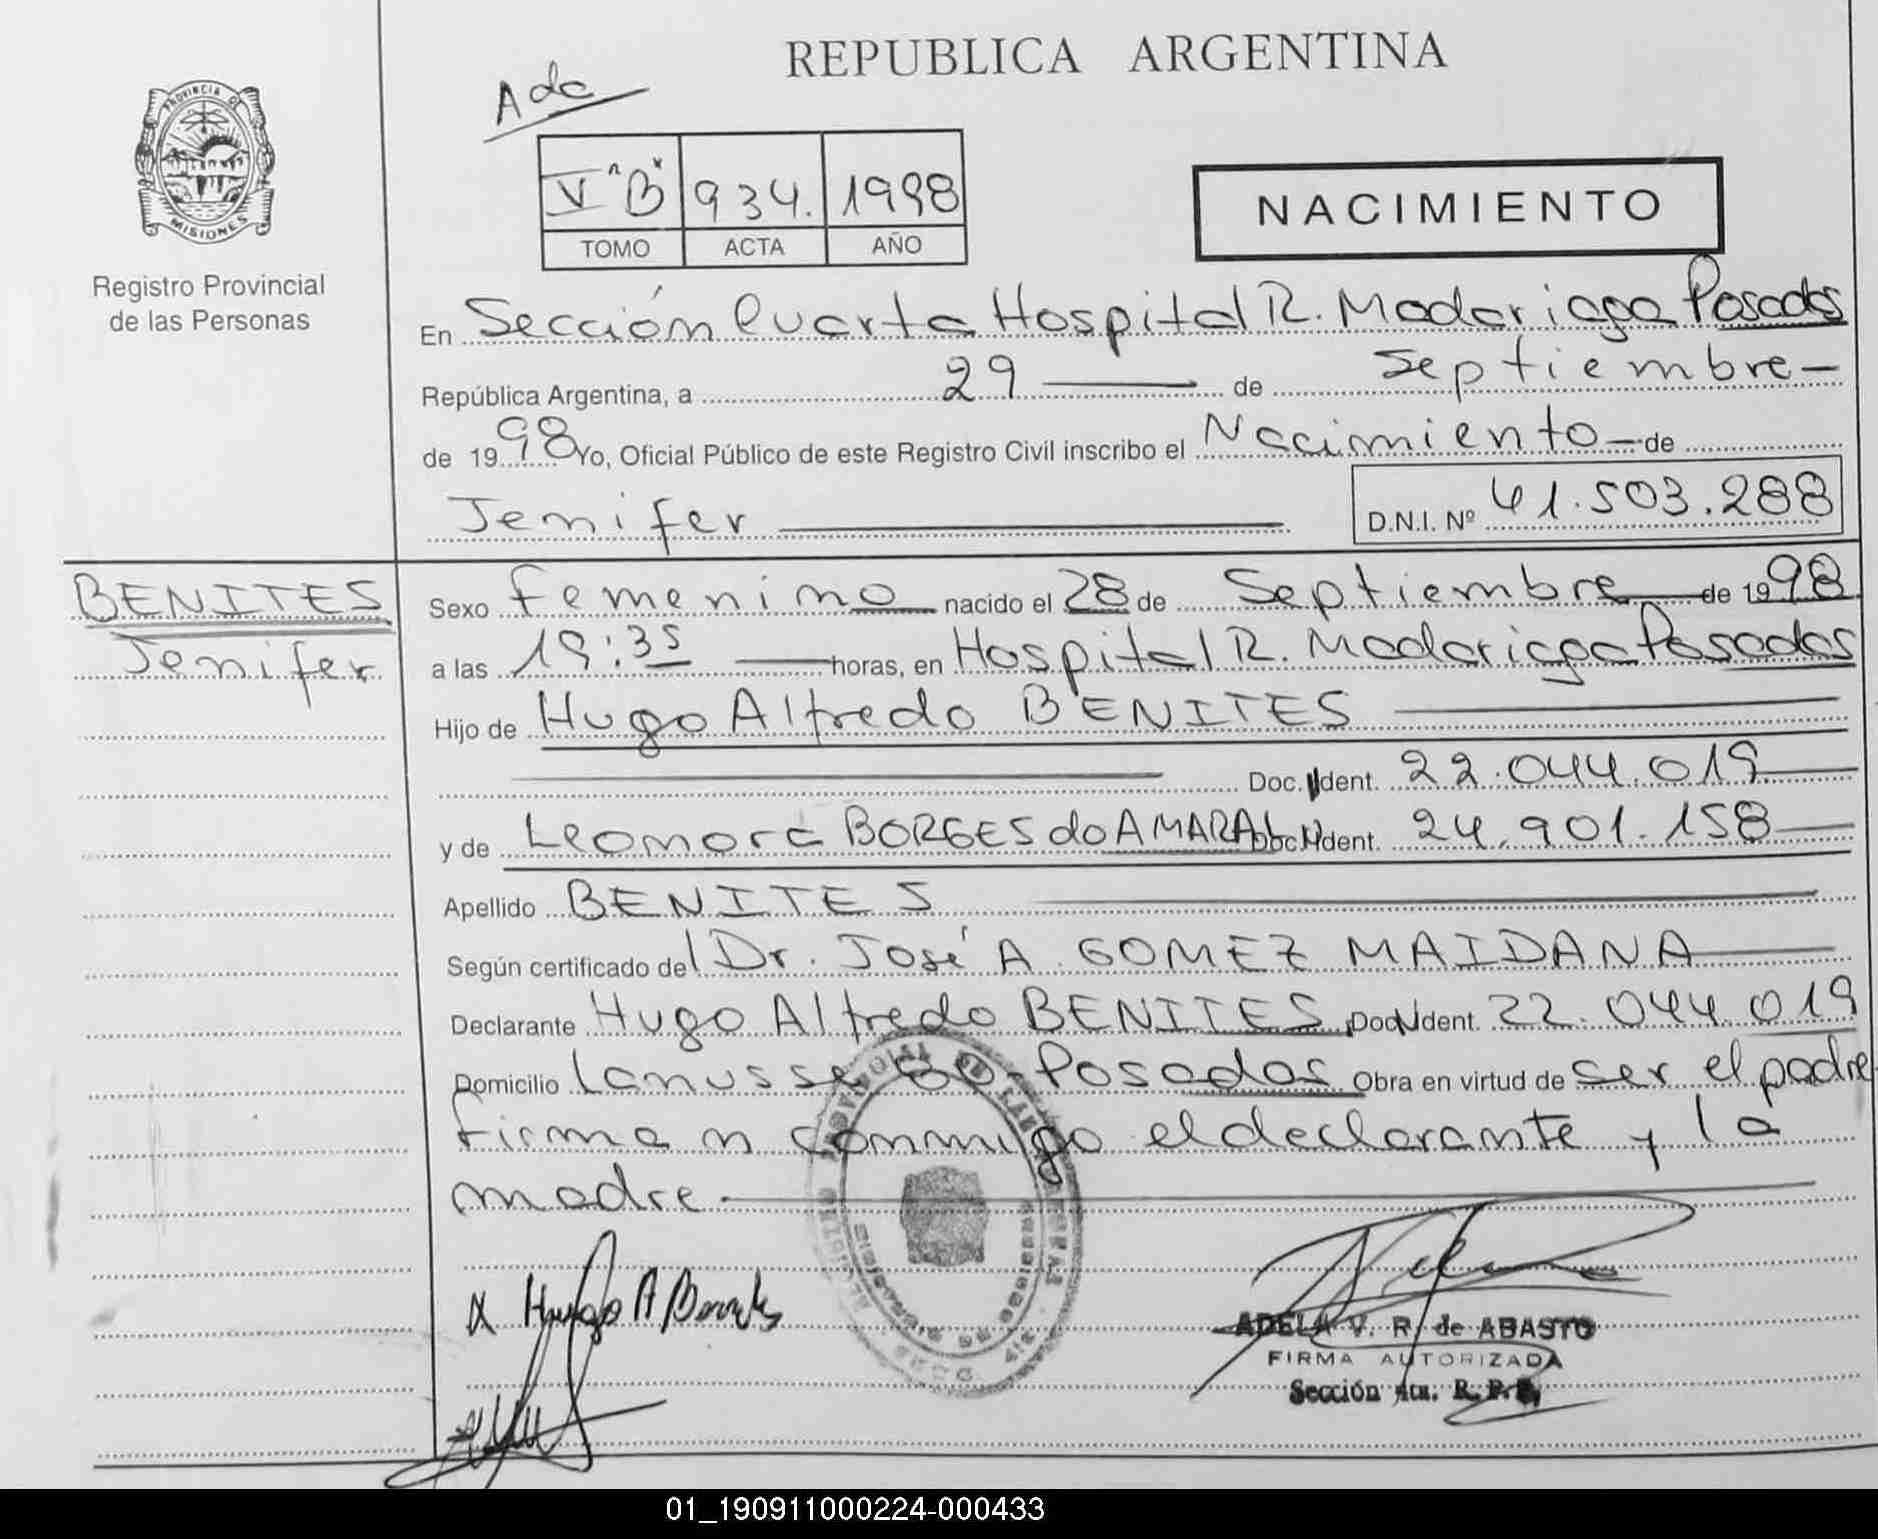 REPUBLICA ARGENTINA
PROVINCIA DE
MISIONES
Registro Provincial
de las Personas
V "B" 934. 1998
TOMO ACTA AÑO
NACIMIENTO
En Sección Cuarta Hospital R. Madariaga Posadas
República Argentina, a 29 de Septiembre
de 1998 Yo, Oficial Público de este Registro Civil inscribo el Nacimiento de
Jenifer D.N.I. Nº 41.503.288
BENITES
Jenifer
Sexo femenino nacido el 28 de Septiembre de 1998
a las 19:35 horas, en Hospital R. Madariaga Posadas
Hijo de Hugo Alfredo BENITES
Doc. Ident. 22.044.019
y de Leonora BORGES do AMARAL Doc. Ident. 24.901.158
Apellido BENITES
Según certificado del Dr. José A. GOMEZ MAIDANA
Declarante Hugo Alfredo BENITES Doc. Ident. 22.044.019
Domicilio Lanusse Posadas Obra en virtud de ser el padre
firman conmigo el declarante y la
madre.
Hugo A
ADELA V. R. de ABASTO
FIRMA AUTORIZADA
Sección 4ta. R. P.
01_190911000224-000433